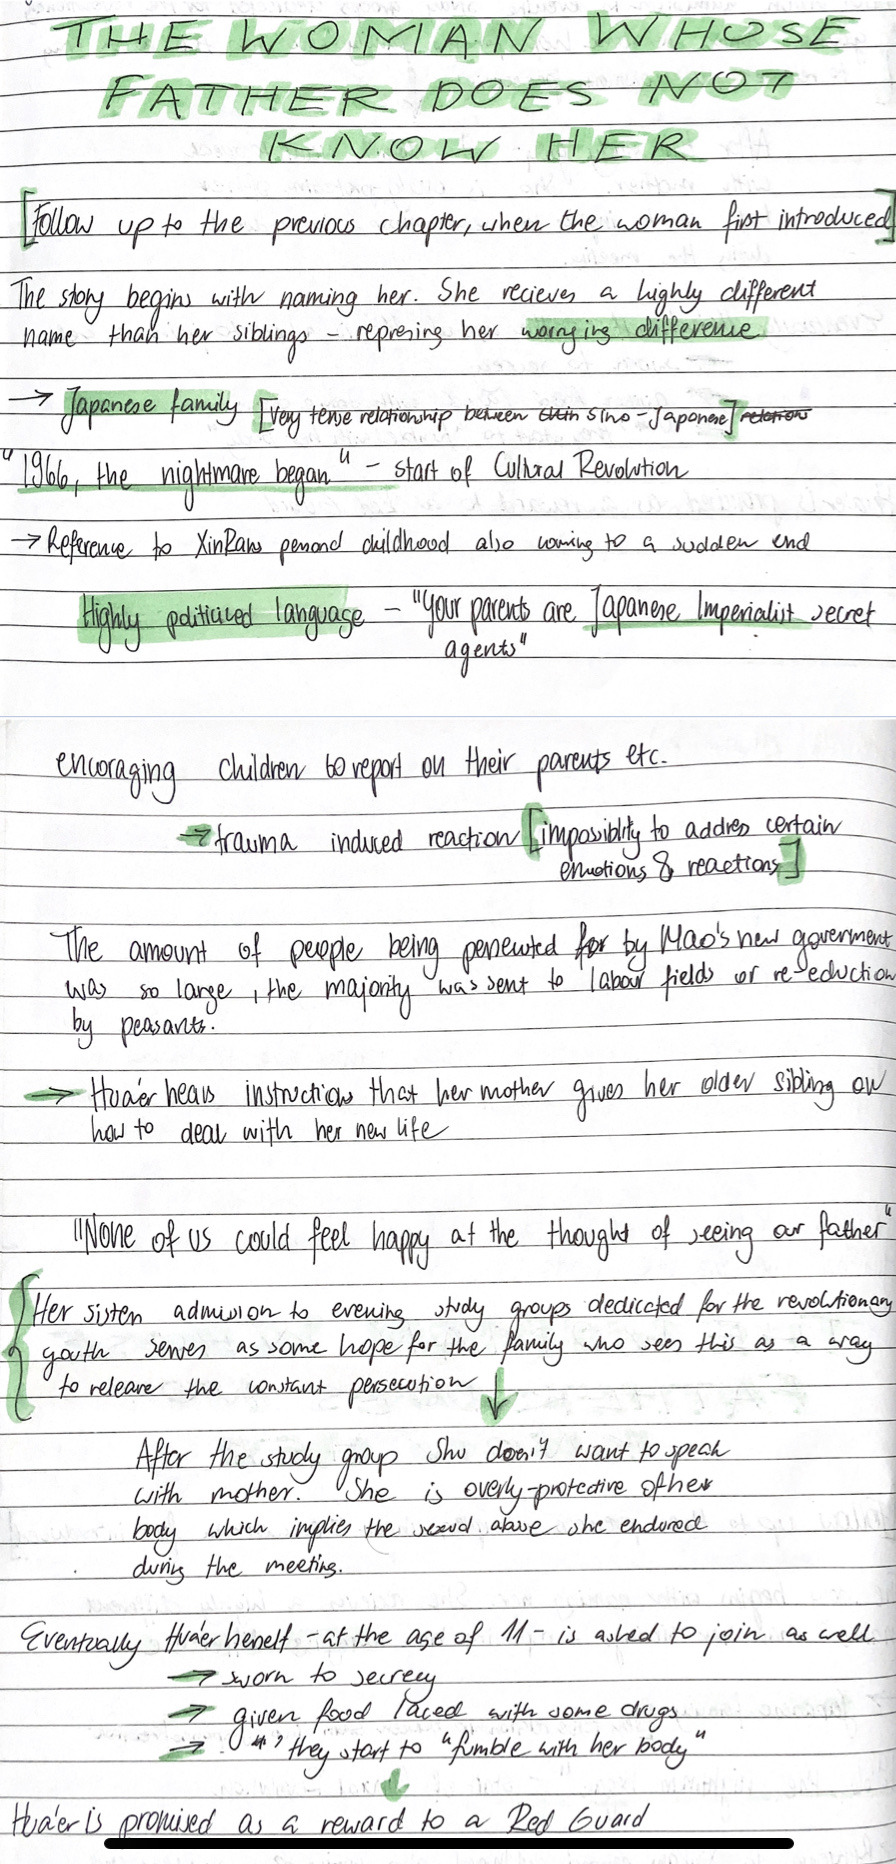 THE WOMAN WHOSE
FATHER DOES NOT
KNOW HER
[Follow up to the previous chapter, when the woman first introduced]
The story begins with naming her. She recieves a highly different
name than her siblings – represing her worrying difference
→ Japanese family [Very tense relationship between Sino-Japanese]
"1966, the nightmare began" – start of Cultural Revolution
→ Reference to XinRans personal childhood also coming to a sudden end
Highly politiciced language – "Your parents are Japanese Imperialist secret
agents"
encoraging children to report on their parents etc.
→ trauma induced reaction [impossiblity to addres certain
emotions & reactions]
The amount of people being persecuted by Mao's new goverment
was so large, the majority was sent to labour fields or re-eduction
by peasants.
→ Hua'er hears instructions that her mother gives her older sibling on
how to deal with her new life
"None of us could feel happy at the thought of seeing our father"
{Her sisters admission to evening study groups dediccted for the revolutionary
youth serves as some hope for the family who sees this as a way
to release the constant persecution ↓
After the study group She doesn't want to speak
with mother. She is overly-protective of her
body which implies the sexual abuse she endured
during the meeting.
Eventually Hua'er herself – at the age of 11 – is asked to join as well
→ sworn to secrecy
→ given food laced with some drugs
→ they start to "fumble with her body"
↓
Hua'er is promised as a reward to a Red Guard